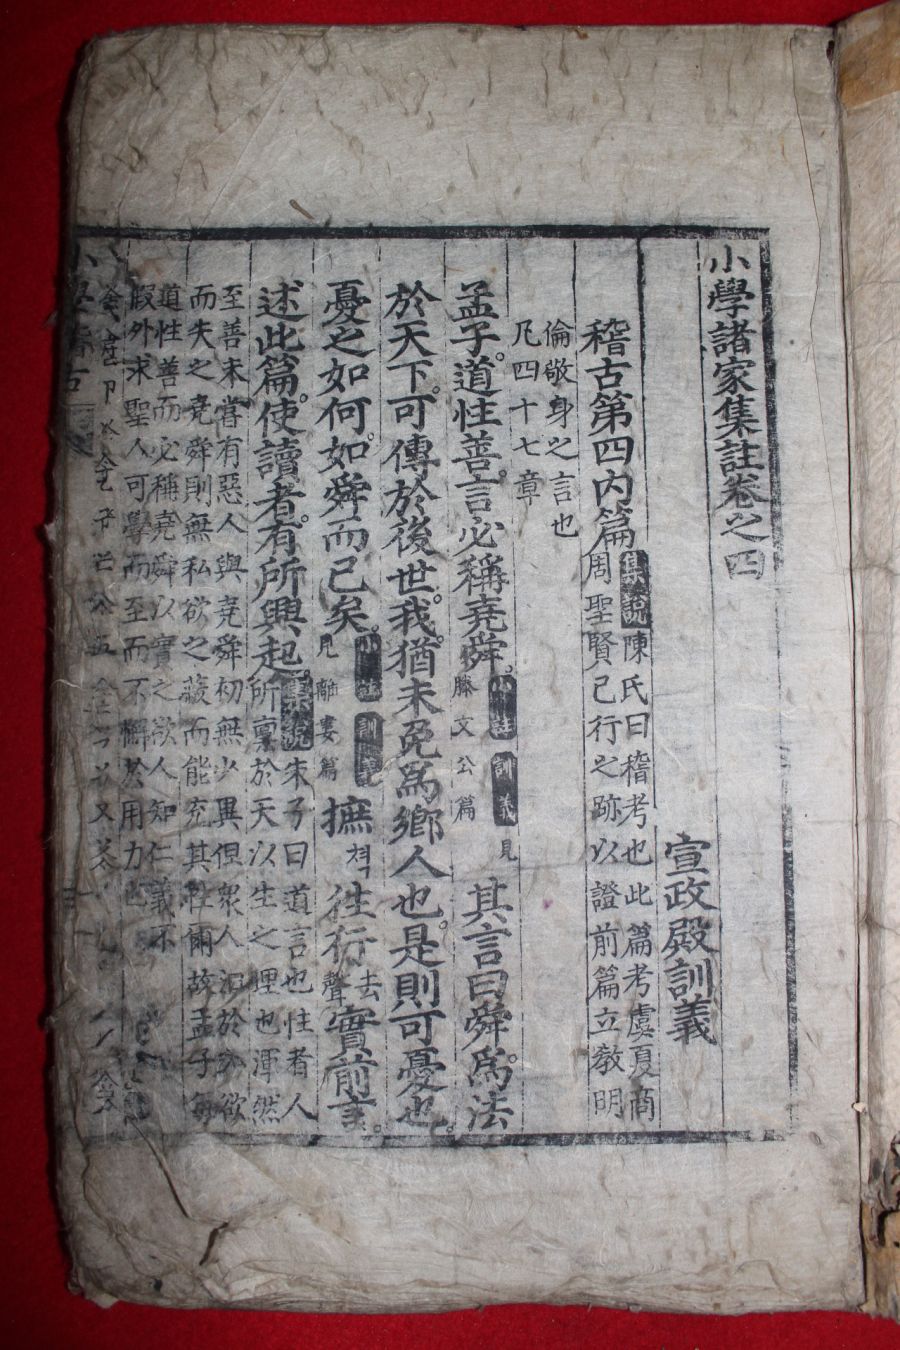 小學諸家集註卷之四
宣政殿訓義
稽古第四內篇 集說 陳氏曰稽考也此篇考虞夏商
周聖賢已行之跡以證前篇立敎明
倫敬身之言也
凡四十七章
孟子道性善言必稱堯舜 小註 訓義 見
滕文公篇 其言曰舜爲法
於天下可傳於後世我猶未免爲鄕人也是則可憂也
憂之如何如舜而已矣 小註 訓義
見離婁篇 摭 척 往行 去聲 實前言
述此篇使讀者有所興起 集說 朱子曰道言也性者人
所禀於天以生之理也渾然
至善未嘗有惡人與堯舜初無少異但衆人汩於私欲
而失之堯舜則無私欲之蔽而能充其性爾故孟子每
道性善而必稱堯舜以實之欲人知仁義不
假外求聖人可學而至而不懈於用力也